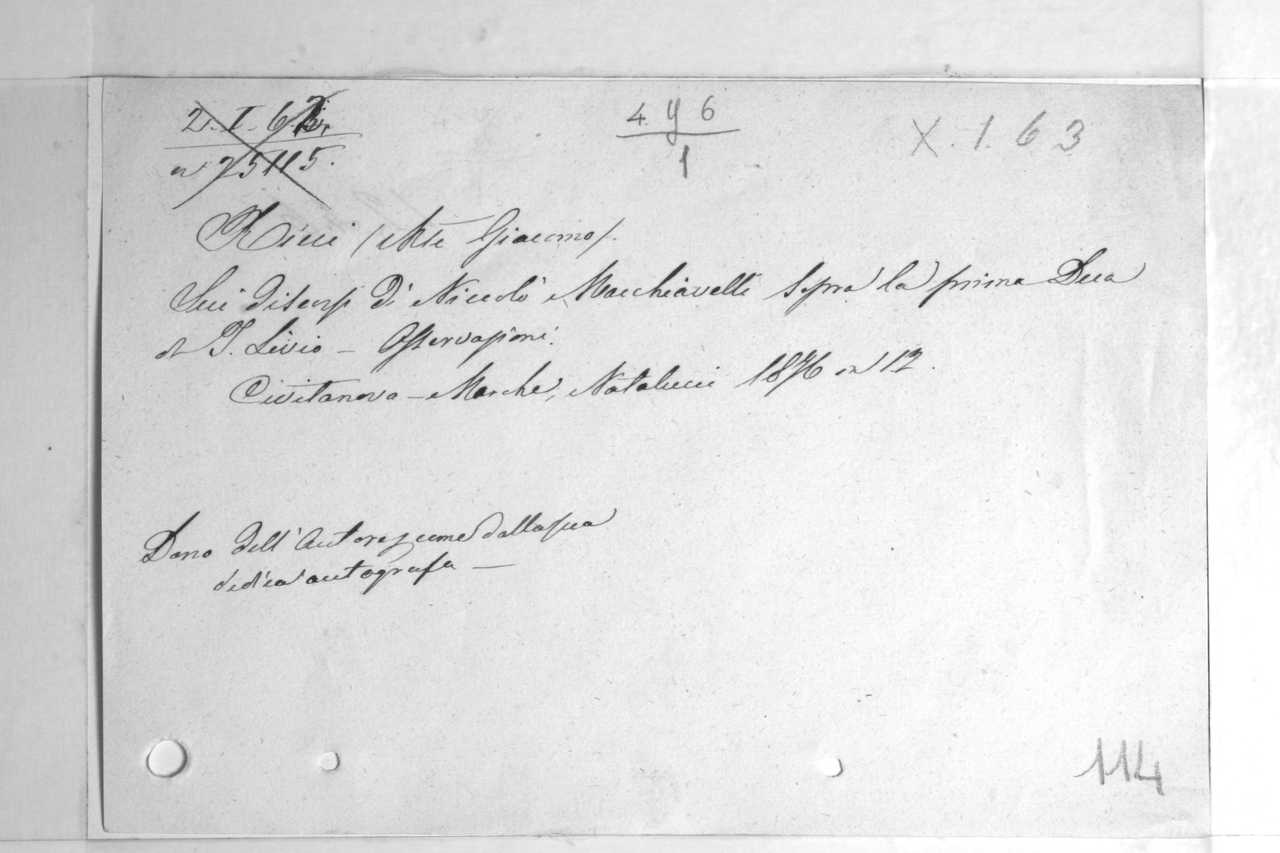 2. I. 6
n° 75115.
4 y 6
1
X. 1. 63
Ricci (Mse Giacomo).
Sui discorsi di Niccolò Macchiavelli sopra la prima Deca
di T. Livio — Osservazioni.
Civitanova-Marche, Natalucci 1876 in 12.
Dono dell'Autore, come dalla sua
dedica autografa —
114